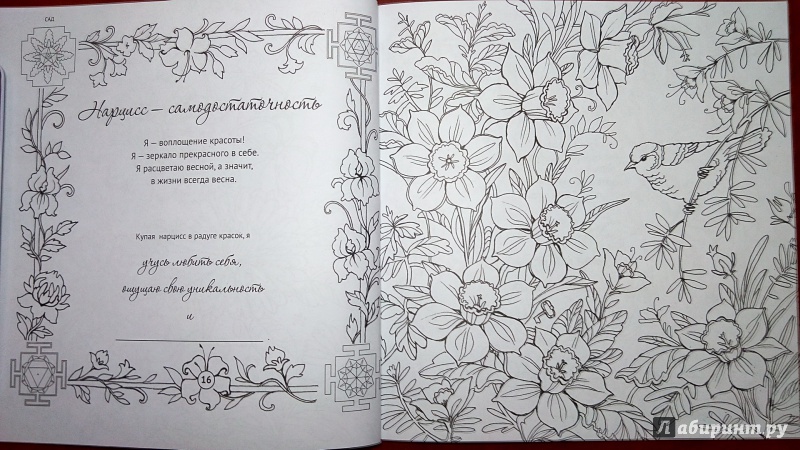 САД
Нарцисс — самодостаточность
Я — воплощение красоты!
Я — зеркало прекрасного в себе.
Я расцветаю весной, а значит,
в жизни всегда весна.
Купая нарцисс в радуге красок, я
учусь любить себя,
ощущаю свою уникальность
и
16
Лабиринт.ру